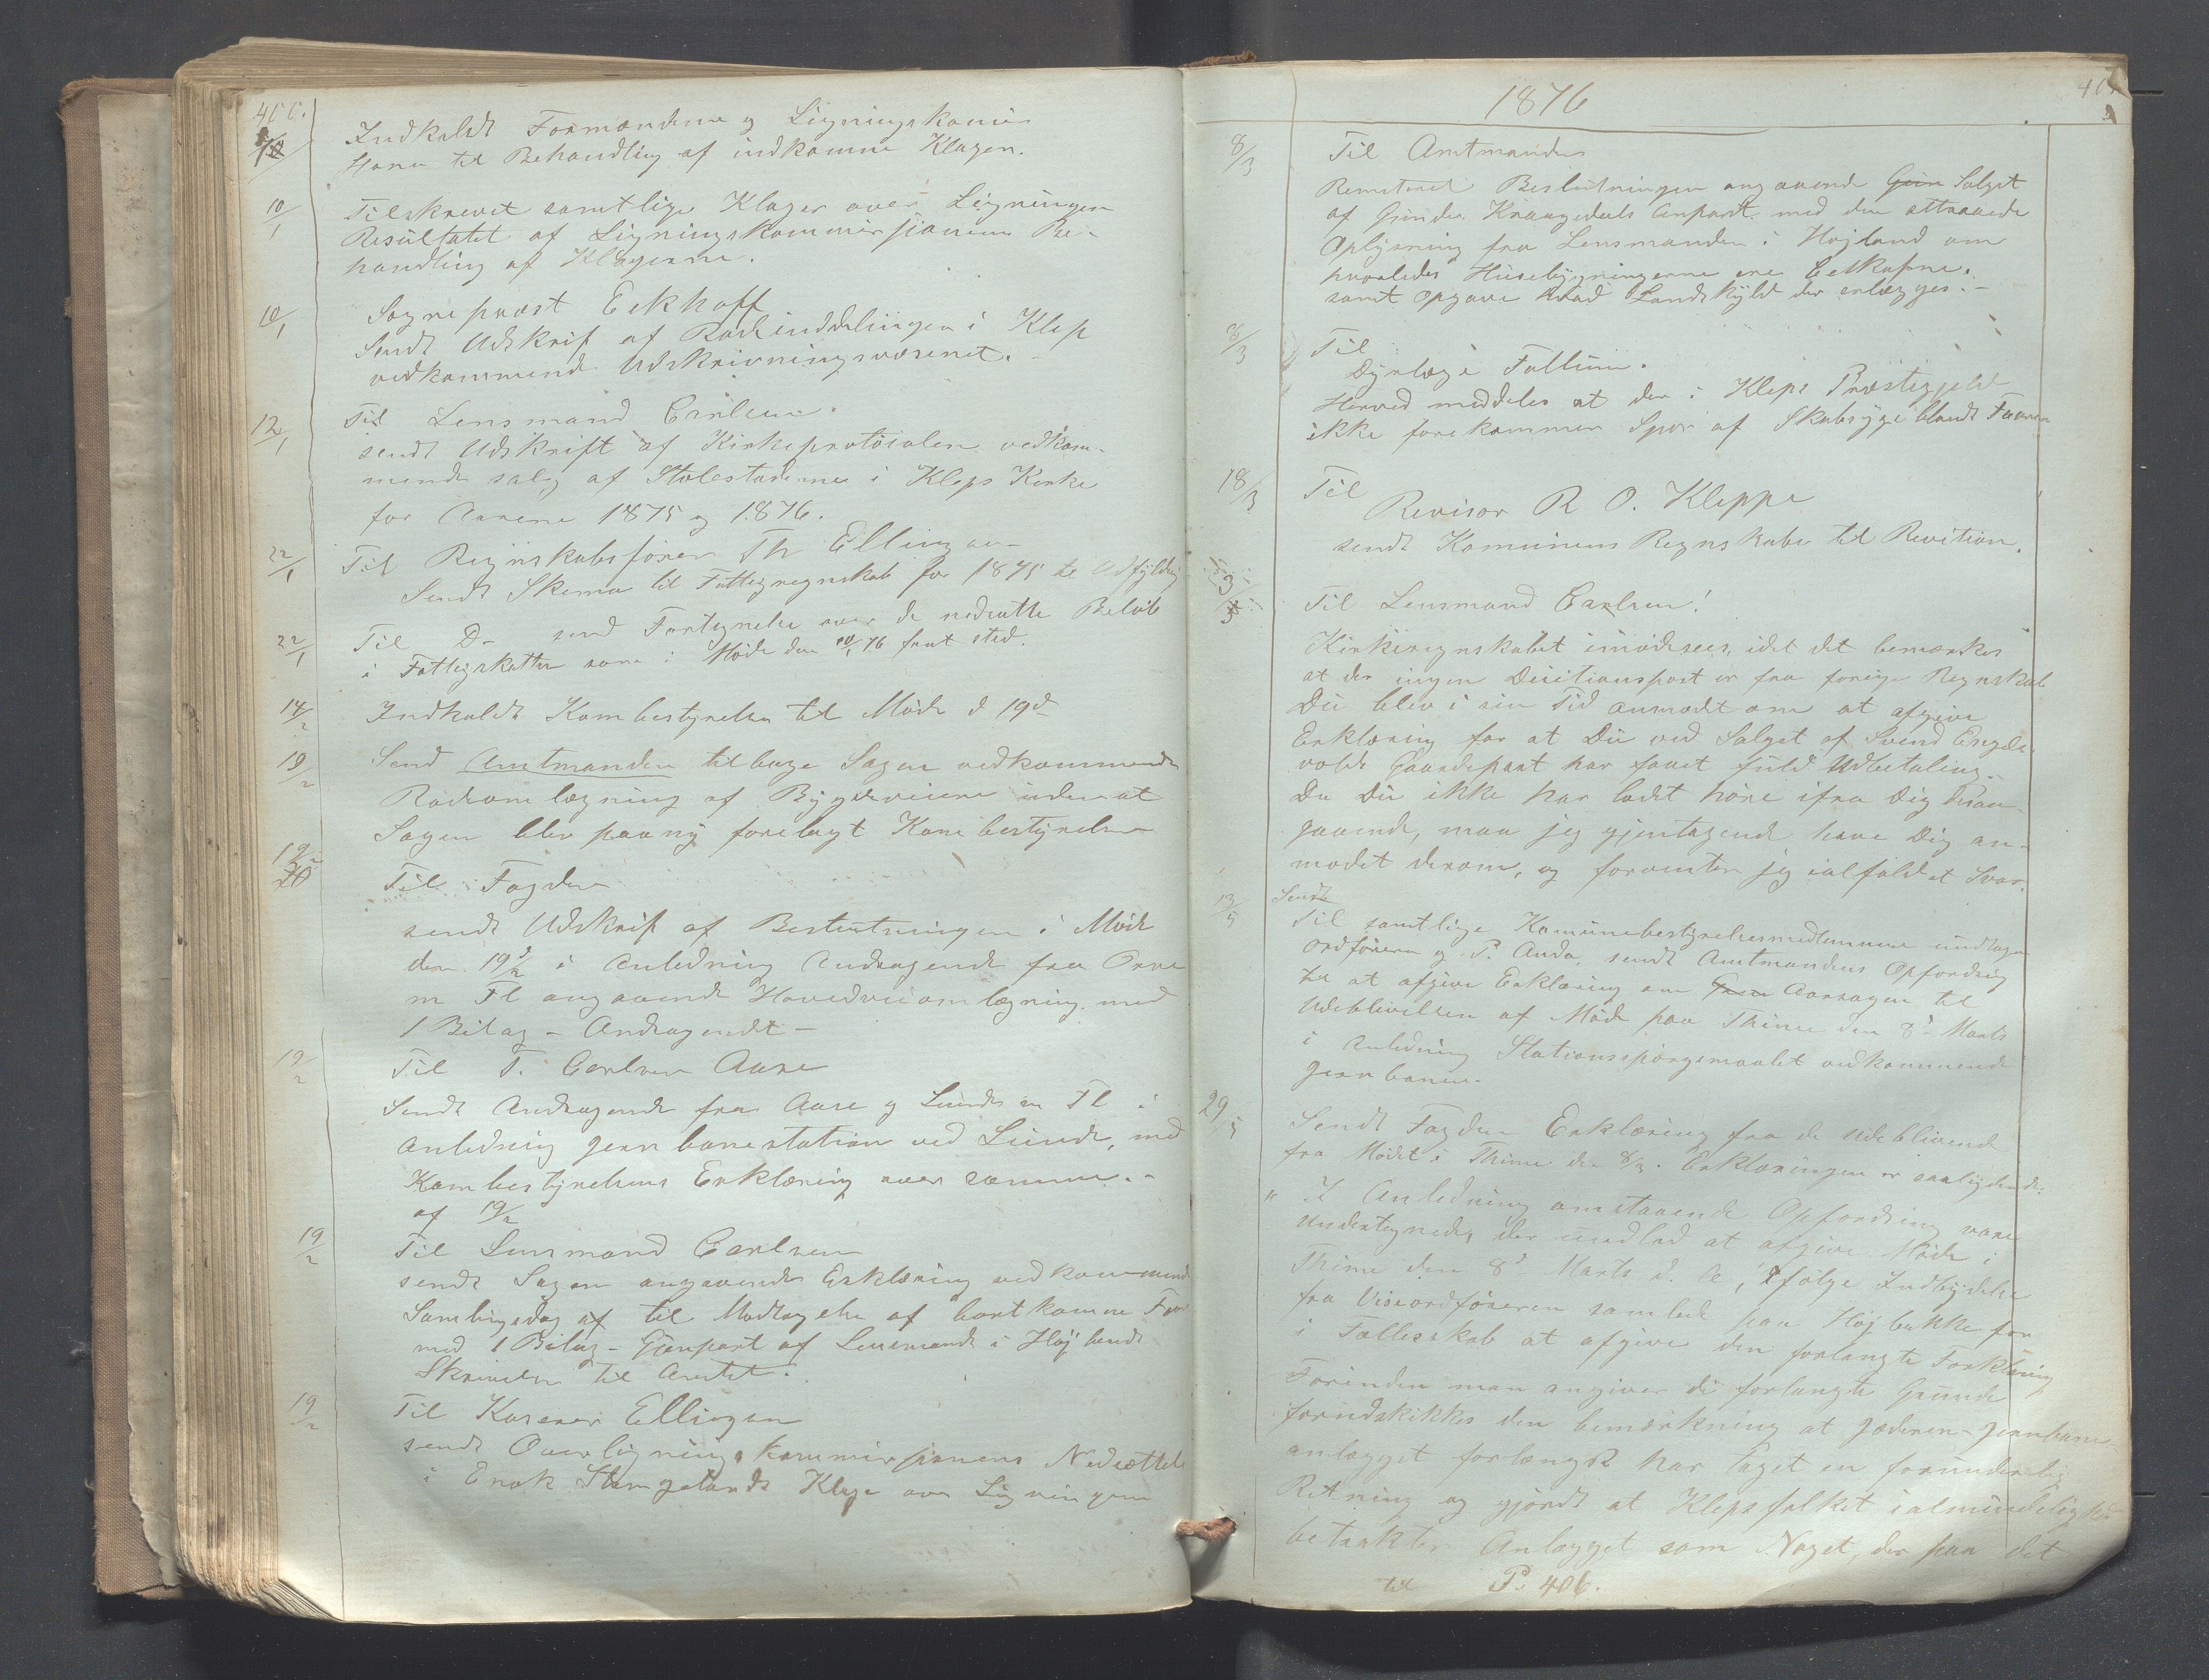 400.
Indkaldt Formændene og Ligningskomis
sionen til Behandling af indkomne Klager.
10/1
Tilskrevet samtlige Klager over Ligningen
Resultatet af Ligningskommissionens Be-
handling af Klagerne.
10/1
Sognepræst Eckhoff
Sendt Udskrift af Rodeinddelingen i Klep
vedkommende Udskrivningsvæsenet.
12/1
Til Lensmand Carlsen.
sendt Udskrift af Kirkeprotocolen vedkom-
mende salg af Stolestaderne i Kleps Kirke
for Aarene 1875 og 1876.
22/1
Til Regnskabsfører Th Ellingsen
Sendt Skema til Fattigregnskab for 1875 til Udfyldig
22/1
Til Do send Fortegnelse over de nedsatte Beløb
i Fattigskatten som i Møde den 10/1 76 fant sted.
14/2
Indkaldt Kombestyrelsen til Møde d 19d
19/2
Send Amtmanden tilbage Sagen vedkommende
Rodeomlægning af Bygdeveiene uden at
Sagen blev paany forelagt Kombestyrelsen
19/2
Til Fogden
sendt Udskrift af Beslutningen i Møde
den 19/2 i Anledning Andragende fra Orre
m Fl angaaende Hovedveiomlægning med
1 Bilag - Andragendet -
19/2
Til T. Carlsen Aase
Sendt Andragende fra Aase og Lunde m Fl i
Anledning Jernbanestation ved Lunde, med
Kombestyrelsens Erklæring over samme. -
af 19/2
19/2
Til Lensmand Carlsen
sendt Sagen angaaende Erklæring vedkommende
Samlingsdag af til Modtagelse af bortkomne Faar
med 1 Bilag - Gjenpart af Lensmand i Højlands
Skrivelse til Amtet.
19/2
Til Kaserer Ellingsen
sendt Overligningskommissionens Nedsættelse
i Enok Stangelands Klage over Ligningen
1876
8/3
Til Amtmanden
Remiteret Beslutningen angaaende Salget
af Gunder Kraagedals Anpart med den attraaede
Oplysning fra Lensmanden i Højland om
hvorledes Husebygningerne ere beskafne.
samt Opgave hvad Landskyld der erlægges. -
8/3
Til
Dyrlæge Fallum.
Herved meddeles at der i Kleps Præstegjeld
ikke forekommer Spor af Skabsyge blandt Faarene
18/3
Til
Revisor R O. Kleppe
sendt Komunens Regnskaber til Revition.
3/5
Til Lensmand Carlsen!
Kirkeregnskabet imødesees, idet det bemærkes
at der ingen Decitionspost er fra forige Regnskab
Du blev i sin Tid anmodet om at afgive
Erklæring for at Du ved Salget af Svend Engels-
volds Gaardepart har faaet fuld Udbetaling.
Da Du ikke har ladt høre ifra Dig desan-
gaaende, maa jeg gjentagende have Dig an-
modet derom, og forventer jeg ialfald et Svar.
13/5
Sendt
Til samtlige Komunebestyrelsesmedlemmer undtagen
Ordføreren og P. Anda, sendt Amtmandens Opfordrig
til at afgive Erklæring om Aarsagen til
Udeblivelsen af Møde paa Thime den 8d Marts
i Anledning Stationsspørgsmaalet vedkommende
Jernbanen.
29/5
Sendt Fogden Erklæring fra de Udeblivende
fra Mødet i Thime den 8/3. Erklæringen er saalydende:
" I Anledning omstaaende Opfordring vare
Undertegnede, der undlod at afgive Møde i
Thime den 8d Marts d. A, ifølge Indbydelse
fra Viseordføreren samlede paa Højbakke for
i Fællesskab at afgive den forlangte Forklaring
Forinden man angiver de forlangte Grunde
forudskikkes den bemærkning at Jæderen-Jernbane-
anlægget forlængst har taget en forunderlig
Retning og gjordt at Klepsfolket i almindelighed
betrakter Anlægget som Noget, der paa det
til P. 406.